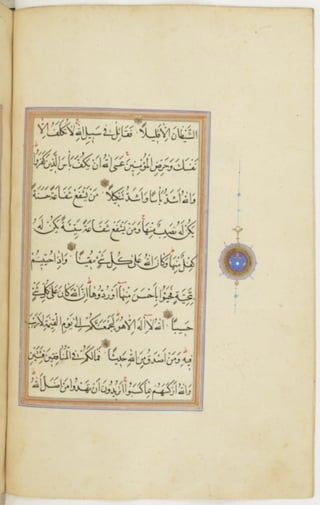 الشَّيْطَانَ اِلَّا قَلِيلًا فَقَاتِلْ فِي سَبِيلِ اللهِ لَا تُكَلَّفُ اِلَّا
نَفْسَكَ وَحَرِّضِ الْمُؤْمِنِينَ عَسَى اللهُ اَنْ يَكُفَّ بَأْسَ الَّذِينَ كَفَرُوا
وَاللهُ اَشَدُّ بَأْسًا وَاَشَدُّ تَنْكِيلًا مَنْ يَشْفَعْ شَفَاعَةً حَسَنَةً
يَكُنْ لَهُ نَصِيبٌ مِنْهَا وَمَنْ يَشْفَعْ شَفَاعَةً سَيِّئَةً يَكُنْ لَهُ
كِفْلٌ مِنْهَا وَكَانَ اللهُ عَلَى كُلِّ شَيْءٍ مُقِيتًا وَاِذَا حُيِّيتُمْ
بِتَحِيَّةٍ فَحَيُّوا بِاَحْسَنَ مِنْهَا اَوْ رُدُّوهَا اِنَّ اللهَ كَانَ عَلَى كُلِّ شَيْءٍ
حَسِيبًا اللهُ لَا اِلَهَ اِلَّا هُوَ لَيَجْمَعَنَّكُمْ اِلَى يَوْمِ الْقِيٰمَةِ لَا رَيْبَ
فِيهِ وَمَنْ اَصْدَقُ مِنَ اللهِ حَدِيثًا فَمَا لَكُمْ فِي الْمُنَافِقِينَ فِئَتَيْنِ
وَاللهُ اَرْكَسَهُمْ بِمَا كَسَبُوا اَتُرِيدُونَ اَنْ تَهْدُوا مَنْ اَضَلَّ اللهُ